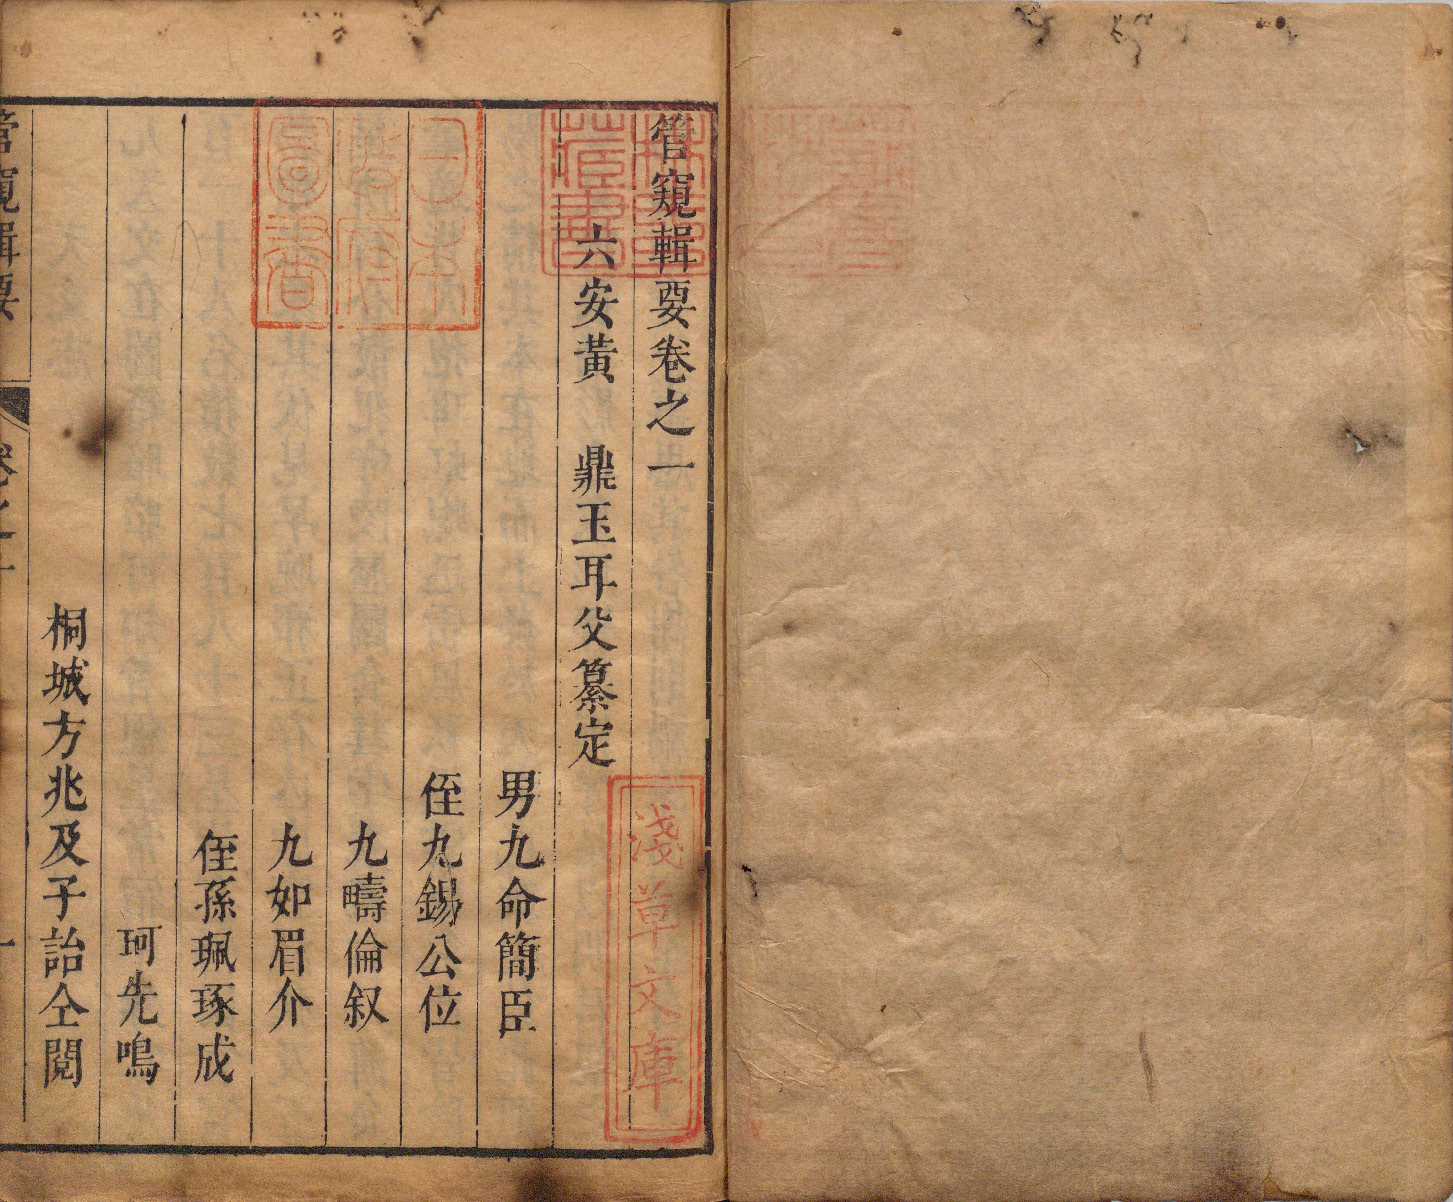 管窺輯要卷之一
六安黃 鼎玉耳父纂定
男九命簡臣
侄九錫公位
九疇倫叙
九如眉介
侄孫珮琢成
珂先鳴
桐城方兆及子詒仝閱
管窺輯要 卷之一 一
林氏藏書
日本政府圖書
淺草文庫